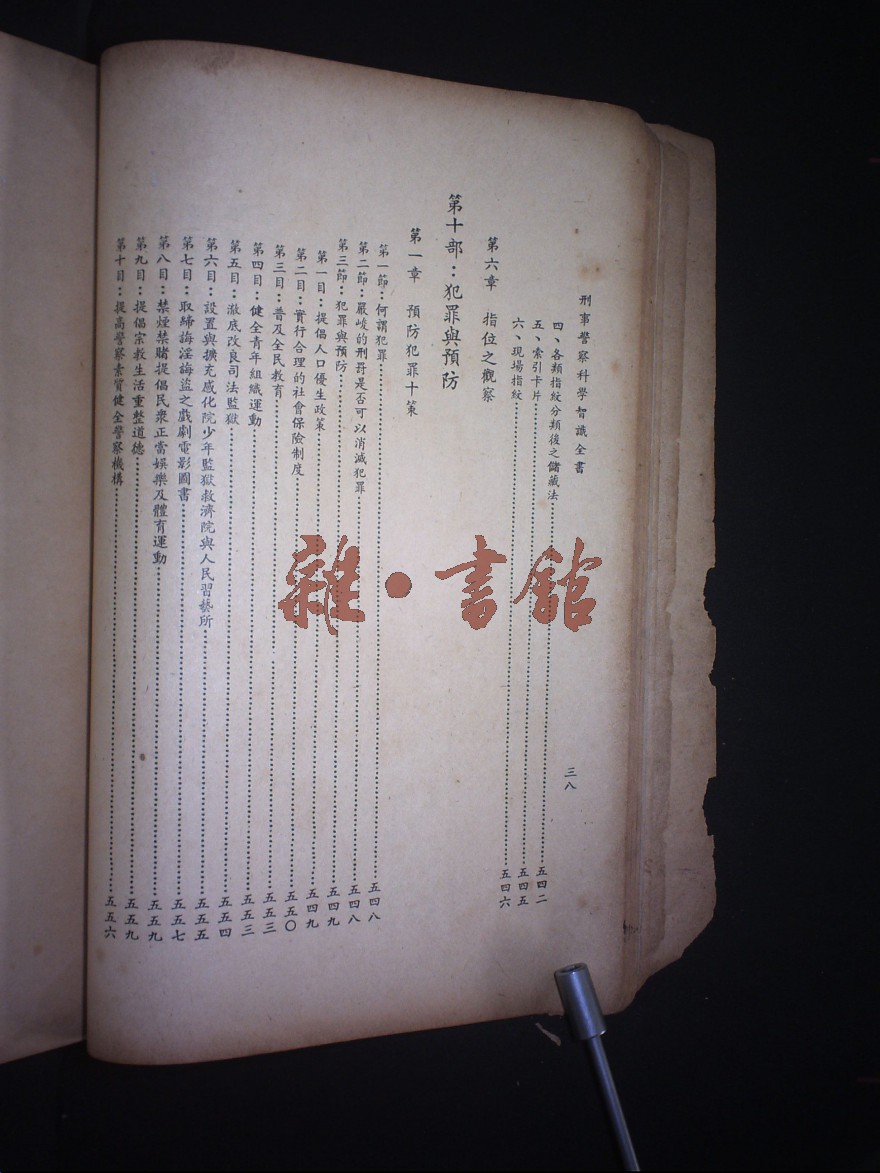 刑事警察科學智識全書
三八
四、各類指紋分類後之儲藏法……五四二
五、索引卡片……五四五
六、現場指紋……五四六
第六章 指位之觀察
第十部：犯罪與預防
第一章 預防犯罪十策
第一節：何謂犯罪……五四八
第二節：嚴峻的刑哥是否可以消滅犯罪……五四八
第三節：犯罪與預防……五四九
第一目：提倡人口優生政策……五四九
第二目：實行合理的社會保險制度……五五〇
第三目：普及全民教育……五五三
第四目：健全青年組織運動……五五三
第五目：澈底改良司法監獄……五五四
第六目：設置與擴充感化院少年監獄救濟院與人民習藝所……五五五
第七目：取締誨淫誨盜之戲劇電影圖書……五五七
第八目：禁煙禁賭提倡民衆正當娛樂及體育運動……五五九
第九目：提倡宗教生活重整道德……五五九
第十目：提高警察素質健全警察機構……五五六
雜·書館